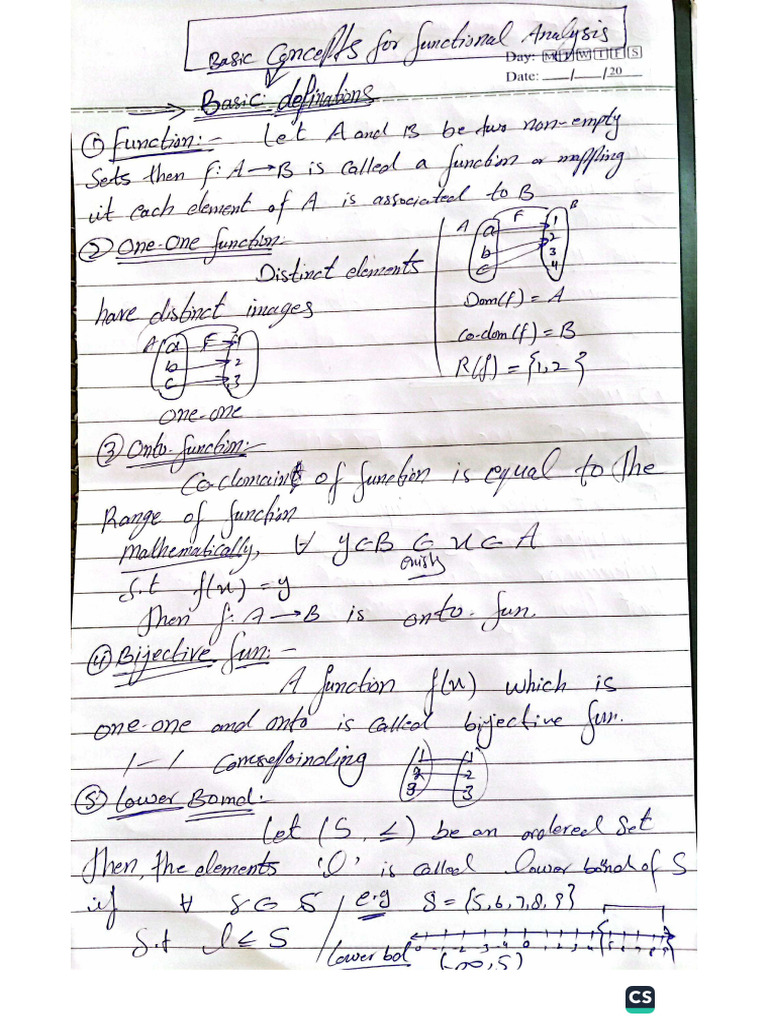 Basic Concepts for functional Analysis
Day: M T W T F S
Date: __/__/20__
Basic definations
① function:- Let A and B be two non-empty
sets then f: A→B is called a function or mappling
it each element of A is associated to B
② One-One function:
Distinct elements
have distinct images
A a F 1
b 2
c 3
one-one
A F B
a 1
b 2
c 3
4
Dom(f) = A
Co-dom(f) = B
R(f) = {1,2}
③ Onto-function:-
Co-domain of function is equal to the
Range of function
Mathematically, ∀ y∈B ∃ x∈A
S.t f(x) = y
Then f: A→B is onto-fun.
④ Bijective fun:-
A function f(x) which is
one-one and onto is called bijective fun.
1-1 Corresponding
1 1
2 2
3 3
⑤ Lower Bond:-
Let (S, ≤) be an ordered set
Then, the elements 'l' is called lower bond of S
if ∀ s∈S / e.g S = {5,6,7,8,9}
S.t l≤S / Lower bol (-∞,5)
CS